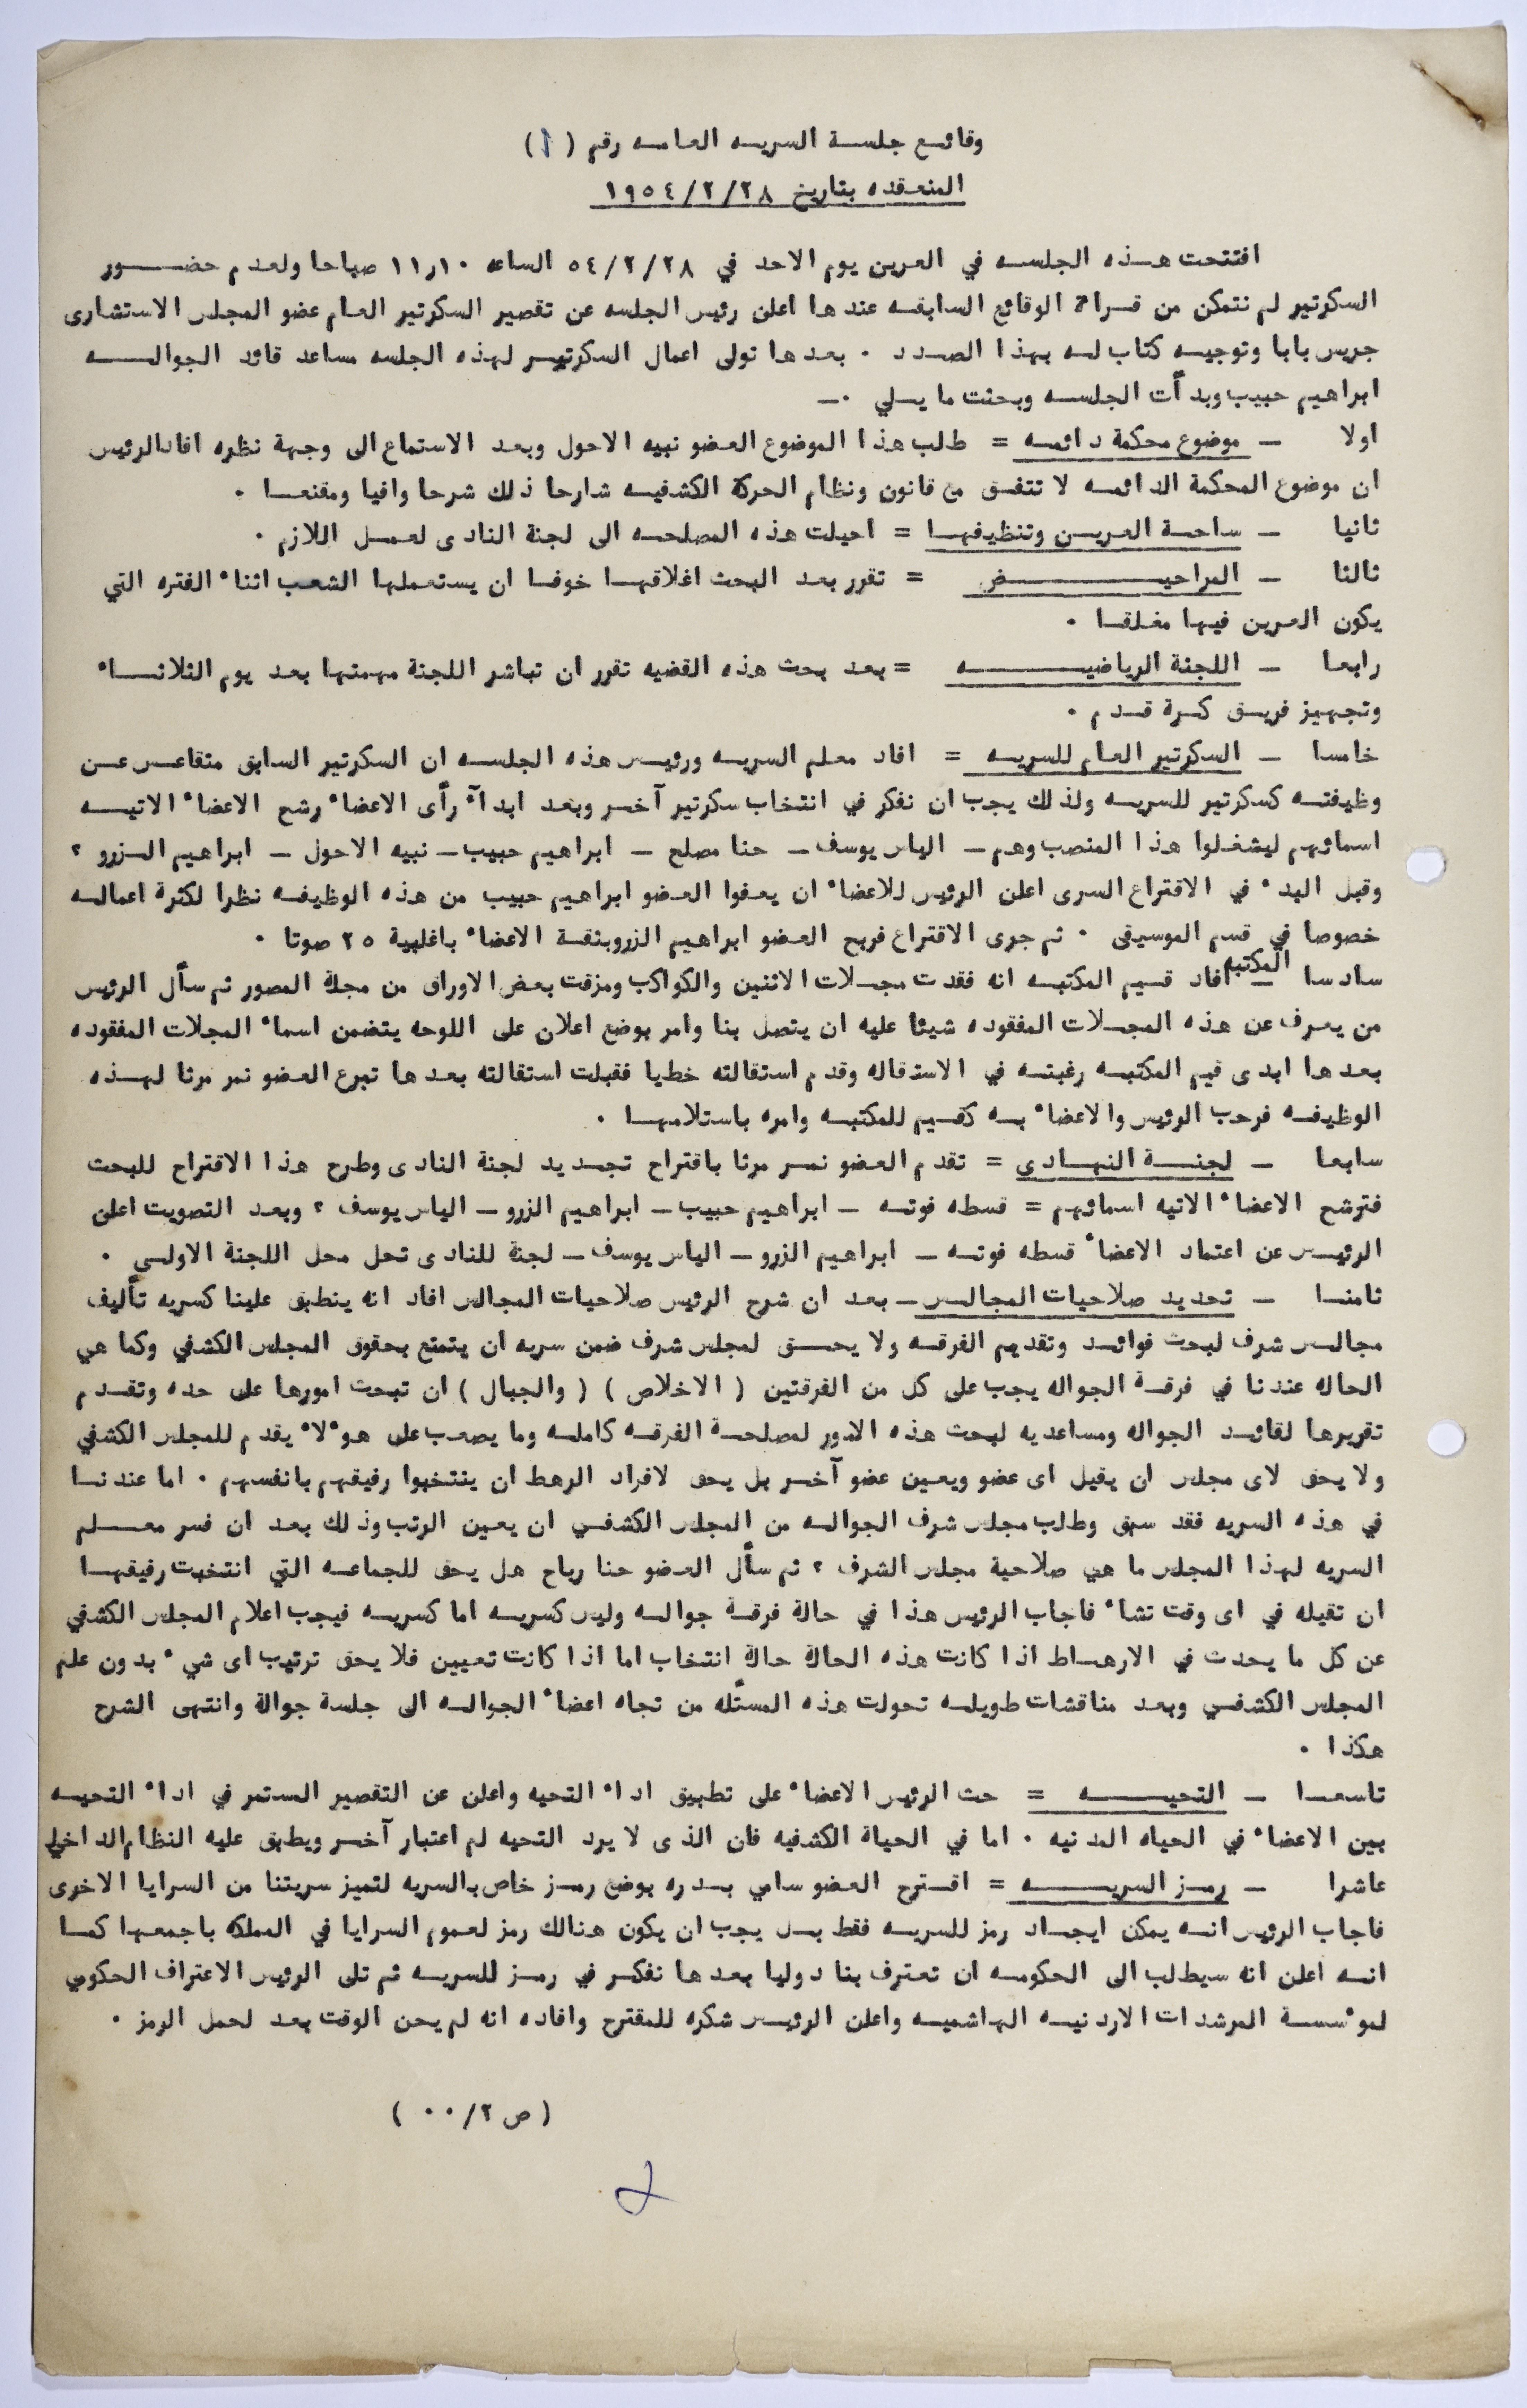 وقائع جلسة السريه العامه رقم ( ١ )
المنعقده بتاريخ ١٩٥٤/٢/٢٨
افتتحت هذه الجلسه في العرين يوم الاحد في ٥٤/٢/٢٨ الساعه ١١٫١٠ صباحا ولعدم حضور
السكرتير لم نتمكن من قراءة الوقائع السابقه عندها اعلن رئيس الجلسه عن تقصير السكرتير العام عضو المجلس الاستشارى
جريس بابا وتوجيه كتاب له بهذا الصدد ٠ بعدها تولى اعمال السكرتير لهذه الجلسه مساعد قائد الجواله
ابراهيم حبيب وبدأت الجلسه وبحثت ما يلي ٠–
اولا – موضوع محكمة دائمه = طلب هذا الموضوع العضو نبيه الاحول وبعد الاستماع الى وجهة نظره افاد الرئيس
ان موضوع المحكمة الدائمه لا تتفق مع قانون ونظام الحركة الكشفيه شارحا ذلك شرحا وافيا ومقنعا ٠
ثانيا – ساحة العرين وتنظيفها = احيلت هذه المصلحه الى لجنة النادى لعمل اللازم ٠
ثالثا – المراحيض = تقرر بعد البحث اغلاقها خوفا ان يستعملها الشعب اثناء الفتره التي
يكون العرين فيها مغلقا ٠
رابعا – اللجنة الرياضيه = بعد بحث هذه القضيه تقرر ان تباشر اللجنة مهمتها بعد يوم الثلاثاء
وتجهيز فريق كرة قدم ٠
خامسا – السكرتير العام للسريه = افاد معلم السريه ورئيس هذه الجلسه ان السكرتير السابق متقاعس عن
وظيفته كسكرتير للسريه ولذلك يجب ان نفكر في انتخاب سكرتير آخر وبعد ابدآء رأى الاعضاء رشح الاعضاء الاتيه
اسمائهم ليشغلوا هذا المنصب وهم – الياس يوسف – حنا مصلح – ابراهيم حبيب – نبيه الاحول – ابراهيم الزرو ؟
وقبل البدء في الاقتراع السرى اعلن الرئيس للاعضاء ان يعفوا العضو ابراهيم حبيب من هذه الوظيفه نظرا لكثرة اعماله
خصوصا في قسم الموسيقى ٠ ثم جرى الاقتراع فربح العضو ابراهيم الزرو بثقة الاعضاء باغلبية ٢٥ صوتا ٠
سادسا – المكتبه افاد قسيم المكتبه انه فقدت مجلات الاثنين والكواكب ومزقت بعض الاوراق من مجلة المصور ثم سأل الرئيس
من يعرف عن هذه المجلات المفقوده شيئا عليه ان يتصل بنا وامر بوضع اعلان على اللوحه يتضمن اسماء المجلات المفقوده
بعدها ابدى قيم المكتبه رغبته في الاستقاله وقدم استقالته خطيا فقبلت استقالته بعدها تبرع العضو نمر مرتا لهذه
الوظيفه فرحب الرئيس والاعضاء به كقيم للمكتبه وامره باستلامها ٠
سابعا – لجنة النادي = تقدم العضو نمر مرتا باقتراح تجديد لجنة النادى وطرح هذا الاقتراح للبحث
فترشح الاعضاء الاتيه اسمائهم = قسطه فوته – ابراهيم حبيب – ابراهيم الزرو – الياس يوسف ؟ وبعد التصويت اعلن
الرئيس عن اعتماد الاعضاء قسطه فوته – ابراهيم الزرو – الياس يوسف – لجنة للنادى تحل محل اللجنة الاولى ٠
ثامنا – تحديد صلاحيات المجالس – بعد ان شرح الرئيس صلاحيات المجالس افاد انه ينطبق علينا كسريه تأليف
مجالس شرف لبحث فوائد وتقديم الفرقه ولا يحق لمجلس شرف ضمن سريه ان يتمتع بحقوق المجلس الكشفي وكما هي
الحاله عندنا في فرقة الجواله يجب على كل من الفرقتين ( الاخلاص ) ( والجبال ) ان تبحث امورها على حده وتقدم
تقريرها لقائد الجواله ومساعديه لبحث هذه الامور لمصلحة الفرقه كامله وما يصعب على هوٴلاء يقدم للمجلس الكشفي
ولا يحق لاى مجلس ان يقيل اى عضو ويعين عضو آخر بل يحق لافراد الرهط ان ينتخبوا رفيقهم بانفسهم ٠ اما عندنا
في هذه السريه فقد سبق وطلب مجلس شرف الجواله من المجلس الكشفي ان يعين الرتب وذلك بعد ان فسر معلم
السريه لهذا المجلس ما هي صلاحية مجلس الشرف ؟ ثم سأل العضو حنا رباح هل يحق للجماعه التي انتخبت رفيقها
ان تقيله في اى وقت تشاء فاجاب الرئيس هذا في حالة فرقة جواله وليس كسريه اما كسريه فيجب اعلام المجلس الكشفي
عن كل ما يحدث في الارهاط اذا كانت هذه الحالة حالة انتخاب اما اذا كانت تعيين فلا يحق ترتيب اى شيء بدون علم
المجلس الكشفي وبعد مناقشات طويله تحولت هذه المسئله من تجاه اعضاء الجواله الى جلسة جوالة وانتهى الشرح
هكذا ٠
تاسعا – التحيه = حث الرئيس الاعضاء على تطبيق اداء التحيه واعلن عن التقصير المستمر في اداء التحيه
بين الاعضاء في الحياه المدنيه ٠ اما في الحياة الكشفيه فان الذى لا يرد التحيه لم اعتبار آخر ويطبق عليه النظام الداخلي
عاشرا – رمز السريه = اقترح العضو سامي بدره بوضع رمز خاص بالسريه لتميز سريتنا من السرايا الاخرى
فاجاب الرئيس انه يمكن ايجاد رمز للسريه فقط بل يجب ان يكون هنالك رمز لعموم السرايا في المملكه باجمعها كما
انه اعلن انه سيطلب الى الحكومه ان تعترف بنا دوليا بعدها نفكر في رمز للسريه ثم تلى الرئيس الاعتراف الحكومي
لموٴسسة المرشدات الاردنيه الهاشميه واعلن الرئيس شكره للمقترح وافاده انه لم يحن الوقت بعد لحمل الرمز ٠
( ص ٢/٠٠ )